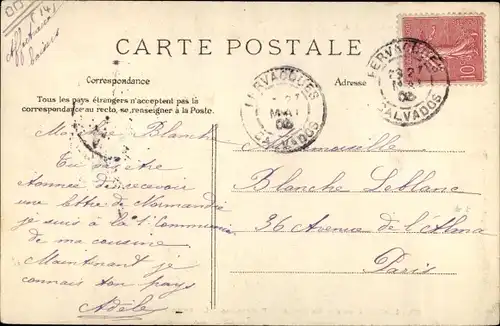 (14)
Affectueux
baisers
CARTE POSTALE
Correspondance
Adresse
Tous les pays étrangers n'acceptent pas la
correspondance au recto, se renseigner à la Poste.
FERVACQUES
27
MAI
08
CALVADOS
FERVACQUES
27
MAI
08
CALVADOS
10
Ma chère Blanche
Tu vas être
étonnée de recevoir
une lettre de Normandie
je suis à la 1e Communion
de ma cousine
Maintenant je
connais ton pays
Adèle
Mademoiselle
Blanche Leblanc
36 Avenue de l'Alma
Paris